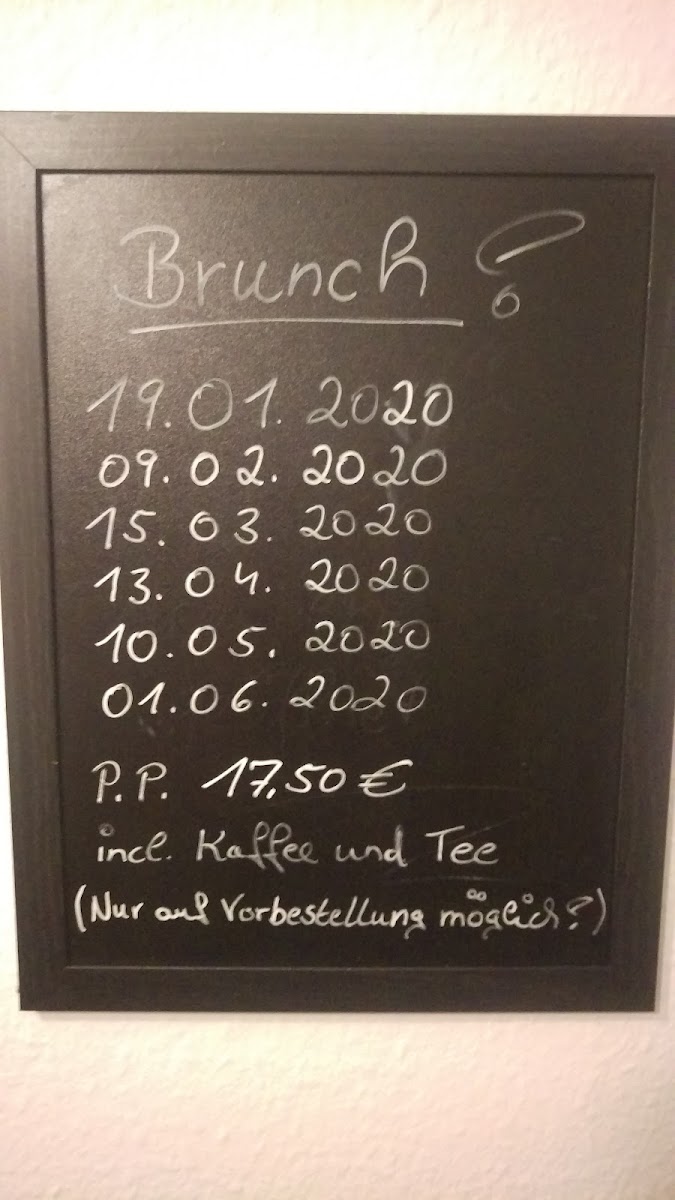 Brunch !
19.01. 2020
09.02. 2020
15.03. 2020
13.04. 2020
10.05. 2020
01.06. 2020
P.P. 17,50 €
incl. Kaffee und Tee
(Nur auf Vorbestellung möglich!)